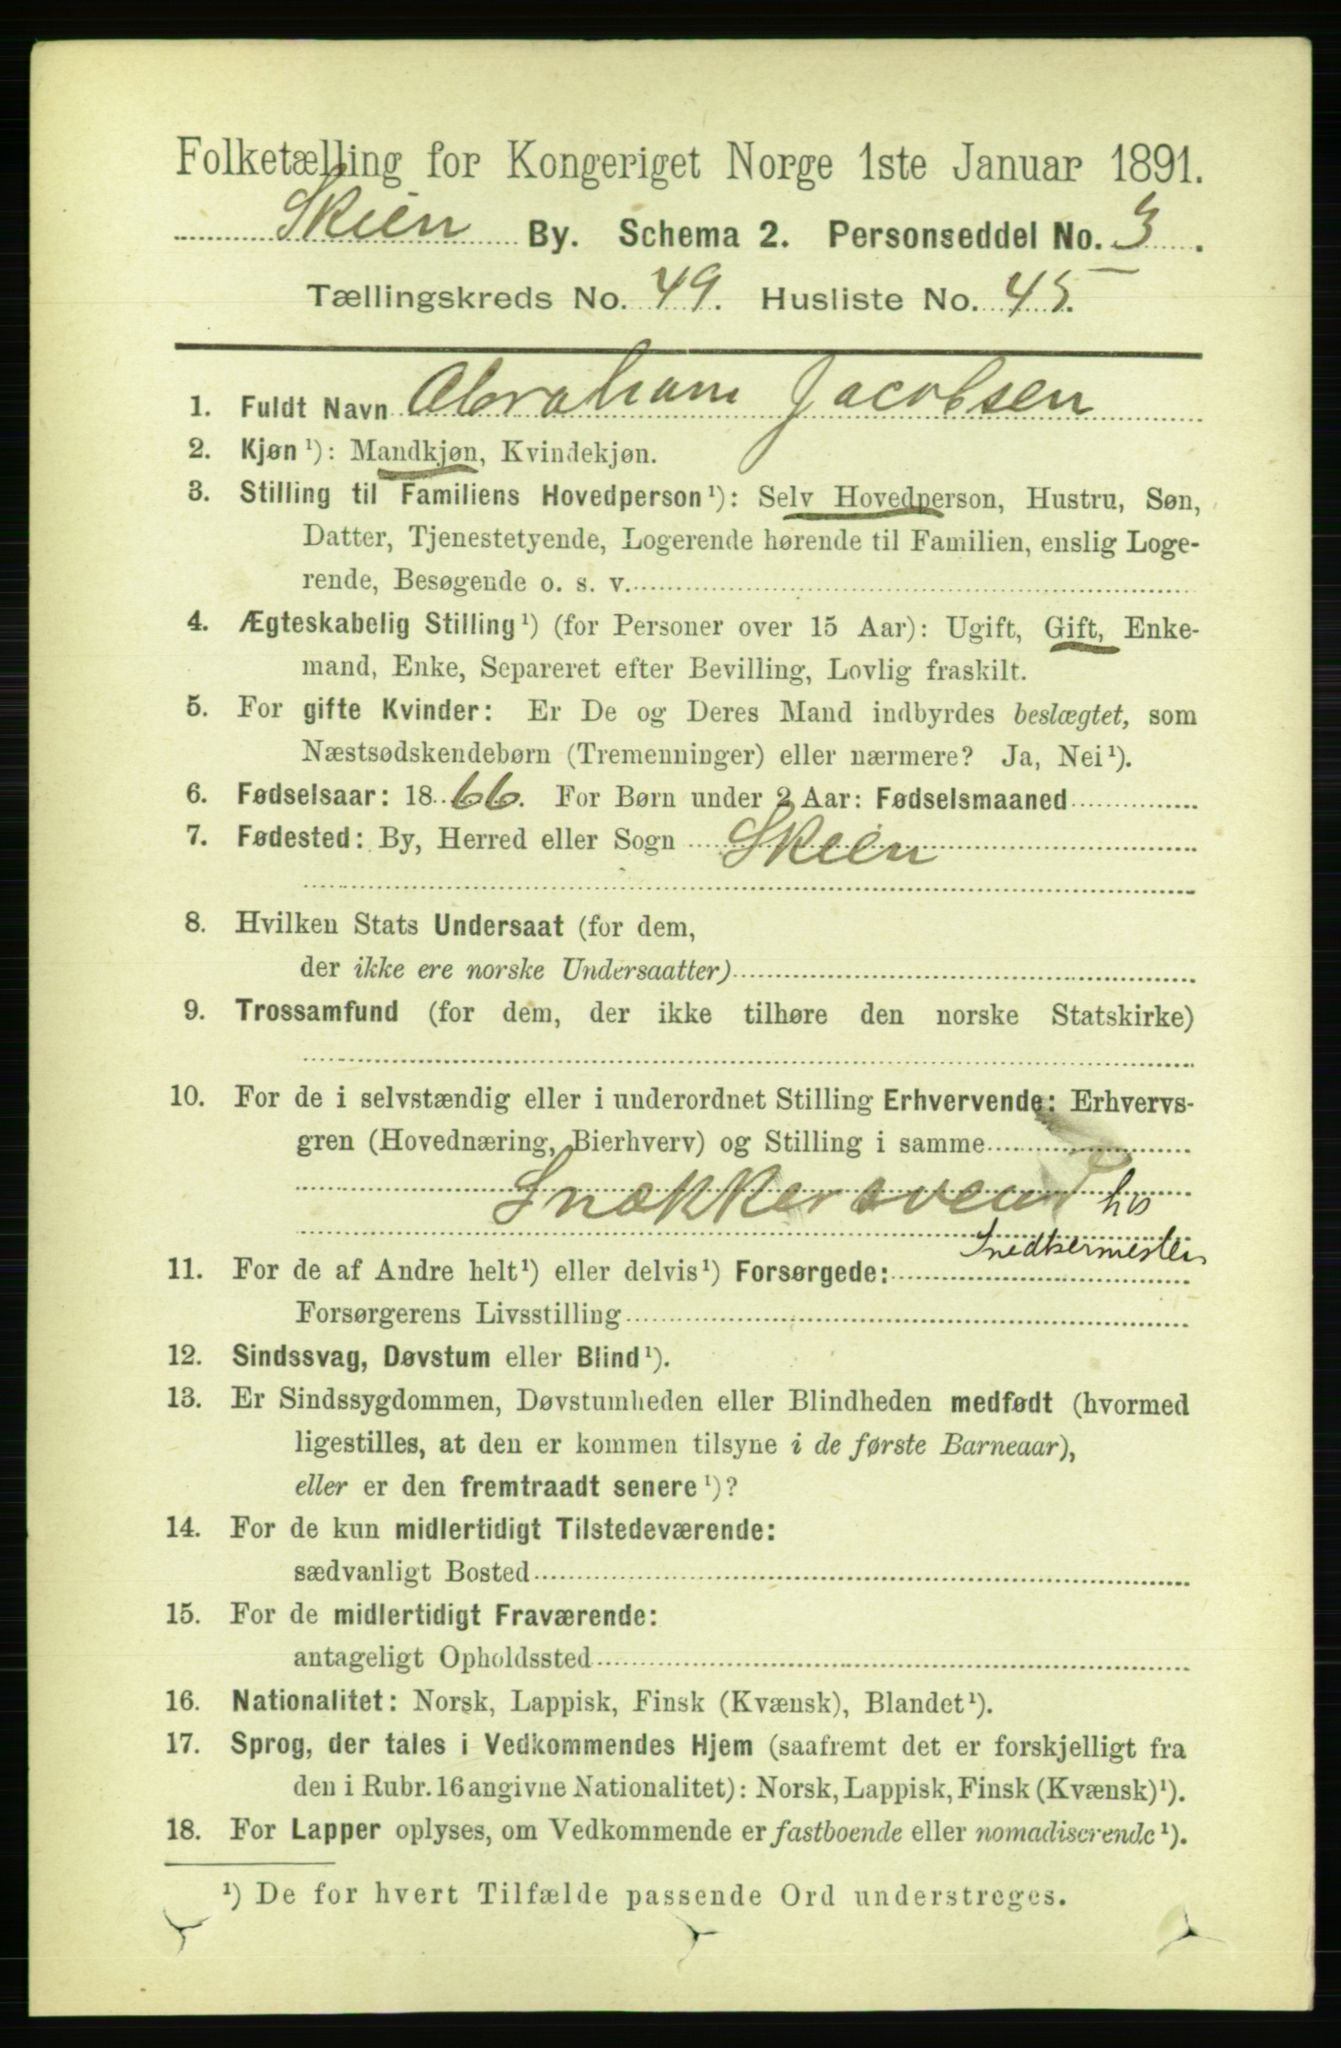 Folketælling for Kongeriget Norge 1ste Januar 1891.
Skien By. Schema 2. Personseddel No. 3.
Tællingskreds No. 49. Husliste No. 45.
1. Fuldt Navn Abraham Jacobsen
2. Kjøn ¹): Mandkjøn, Kvindekjøn.
3. Stilling til Familiens Hovedperson ¹): Selv Hovedperson, Hustru, Søn,
Datter, Tjenestetyende, Logerende hørende til Familien, enslig Loge-
rende, Besøgende o. s. v.
4. Ægteskabelig Stilling ¹) (for Personer over 15 Aar): Ugift, Gift, Enke-
mand, Enke, Separeret efter Bevilling, Lovlig fraskilt.
5. For gifte Kvinder: Er De og Deres Mand indbyrdes beslægtet, som
Næstsødskendebørn (Tremenninger) eller nærmere? Ja, Nei ¹).
6. Fødselsaar: 1866. For Børn under 2 Aar: Fødselsmaaned
7. Fødested: By, Herred eller Sogn Skien
8. Hvilken Stats Undersaat (for dem,
der ikke ere norske Undersaatter)
9. Trossamfund (for dem, der ikke tilhøre den norske Statskirke)
10. For de i selvstændig eller i underordnet Stilling Erhvervende: Erhvervs-
gren (Hovednæring, Bierhverv) og Stilling i samme
Snækkersvend hos
Snedkermester
11. For de af Andre helt ¹) eller delvis ¹) Forsørgede:
Forsørgerens Livsstilling
12. Sindssvag, Døvstum eller Blind ¹).
13. Er Sindssygdommen, Døvstumheden eller Blindheden medfødt (hvormed
ligestilles, at den er kommen tilsyne i de første Barneaar),
eller er den fremtraadt senere ¹)?
14. For de kun midlertidigt Tilstedeværende:
sædvanligt Bosted
15. For de midlertidigt Fraværende:
antageligt Opholdssted
16. Nationalitet: Norsk, Lappisk, Finsk (Kvænsk), Blandet ¹).
17. Sprog, der tales i Vedkommendes Hjem (saafremt det er forskjelligt fra
den i Rubr. 16 angivne Nationalitet): Norsk, Lappisk, Finsk (Kvænsk) ¹).
18. For Lapper oplyses, om Vedkommende er fastboende eller nomadiserende ¹).
¹) De for hvert Tilfælde passende Ord understreges.